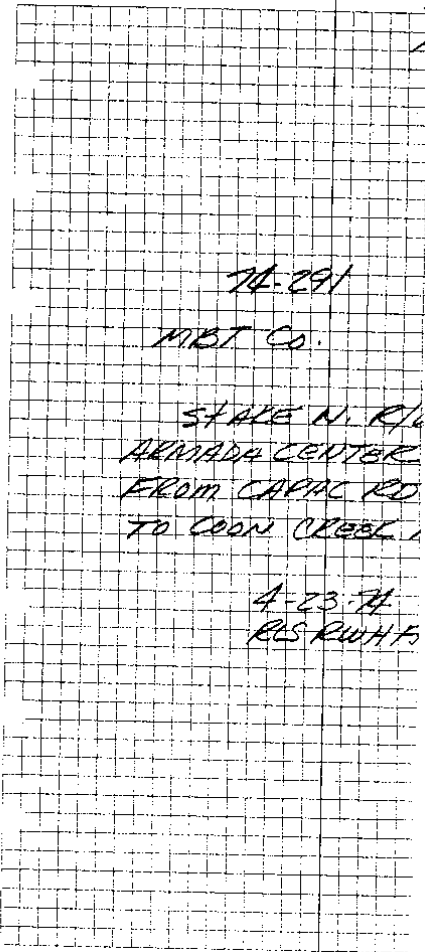 74-291
MBT Co.
STAKE N. R/W
ARMADA CENTER
FROM CAPAC RD
TO COON CREEK
4-23-74
RLS RWH